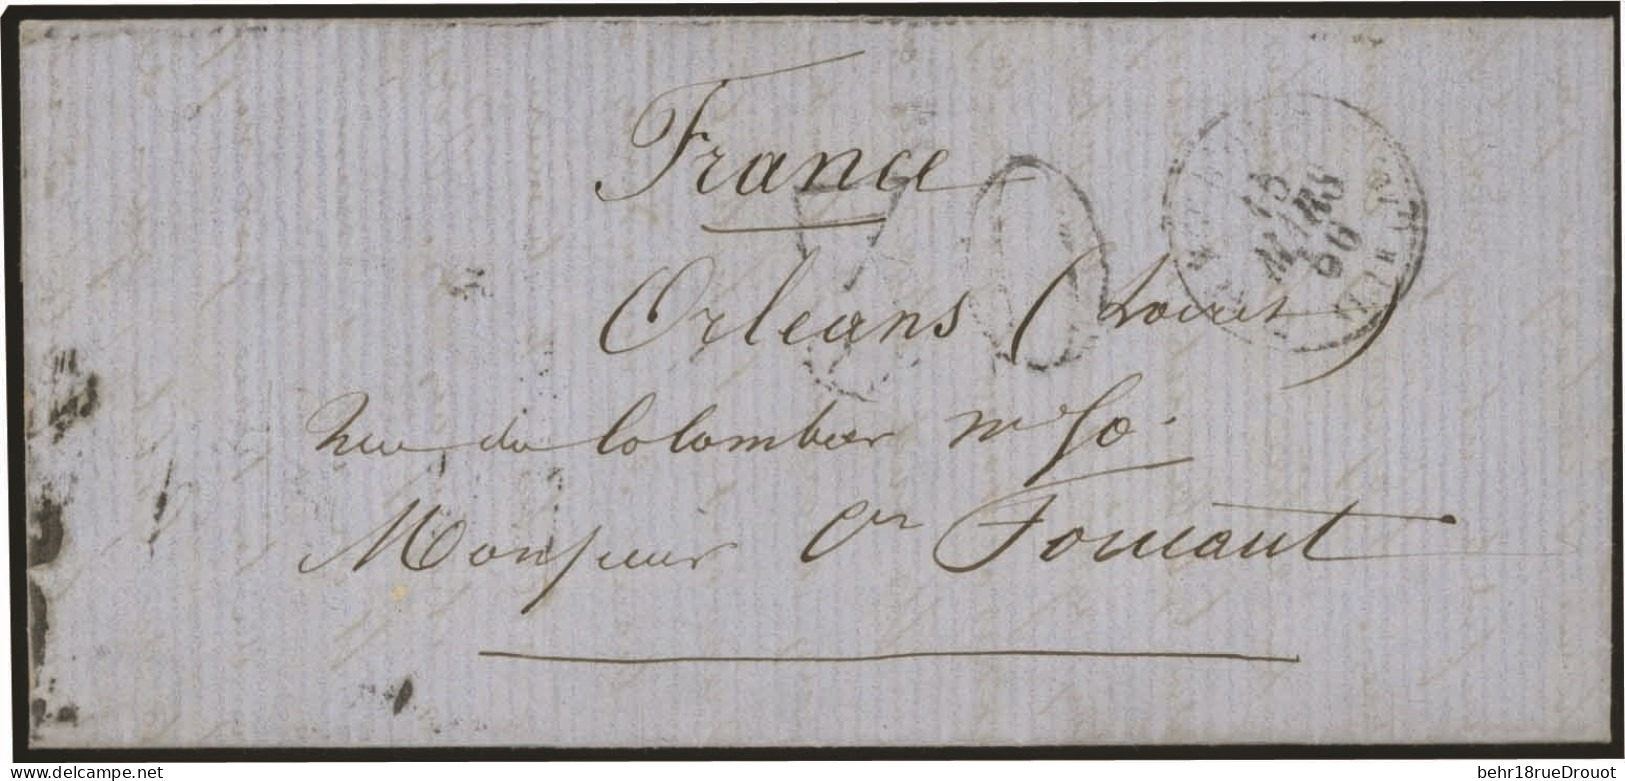 France
Orleans (Loiret)
Rue du Colombier n° 50.
Monsieur
15
MARS
60
delcampe.net
behr18rueDrouot